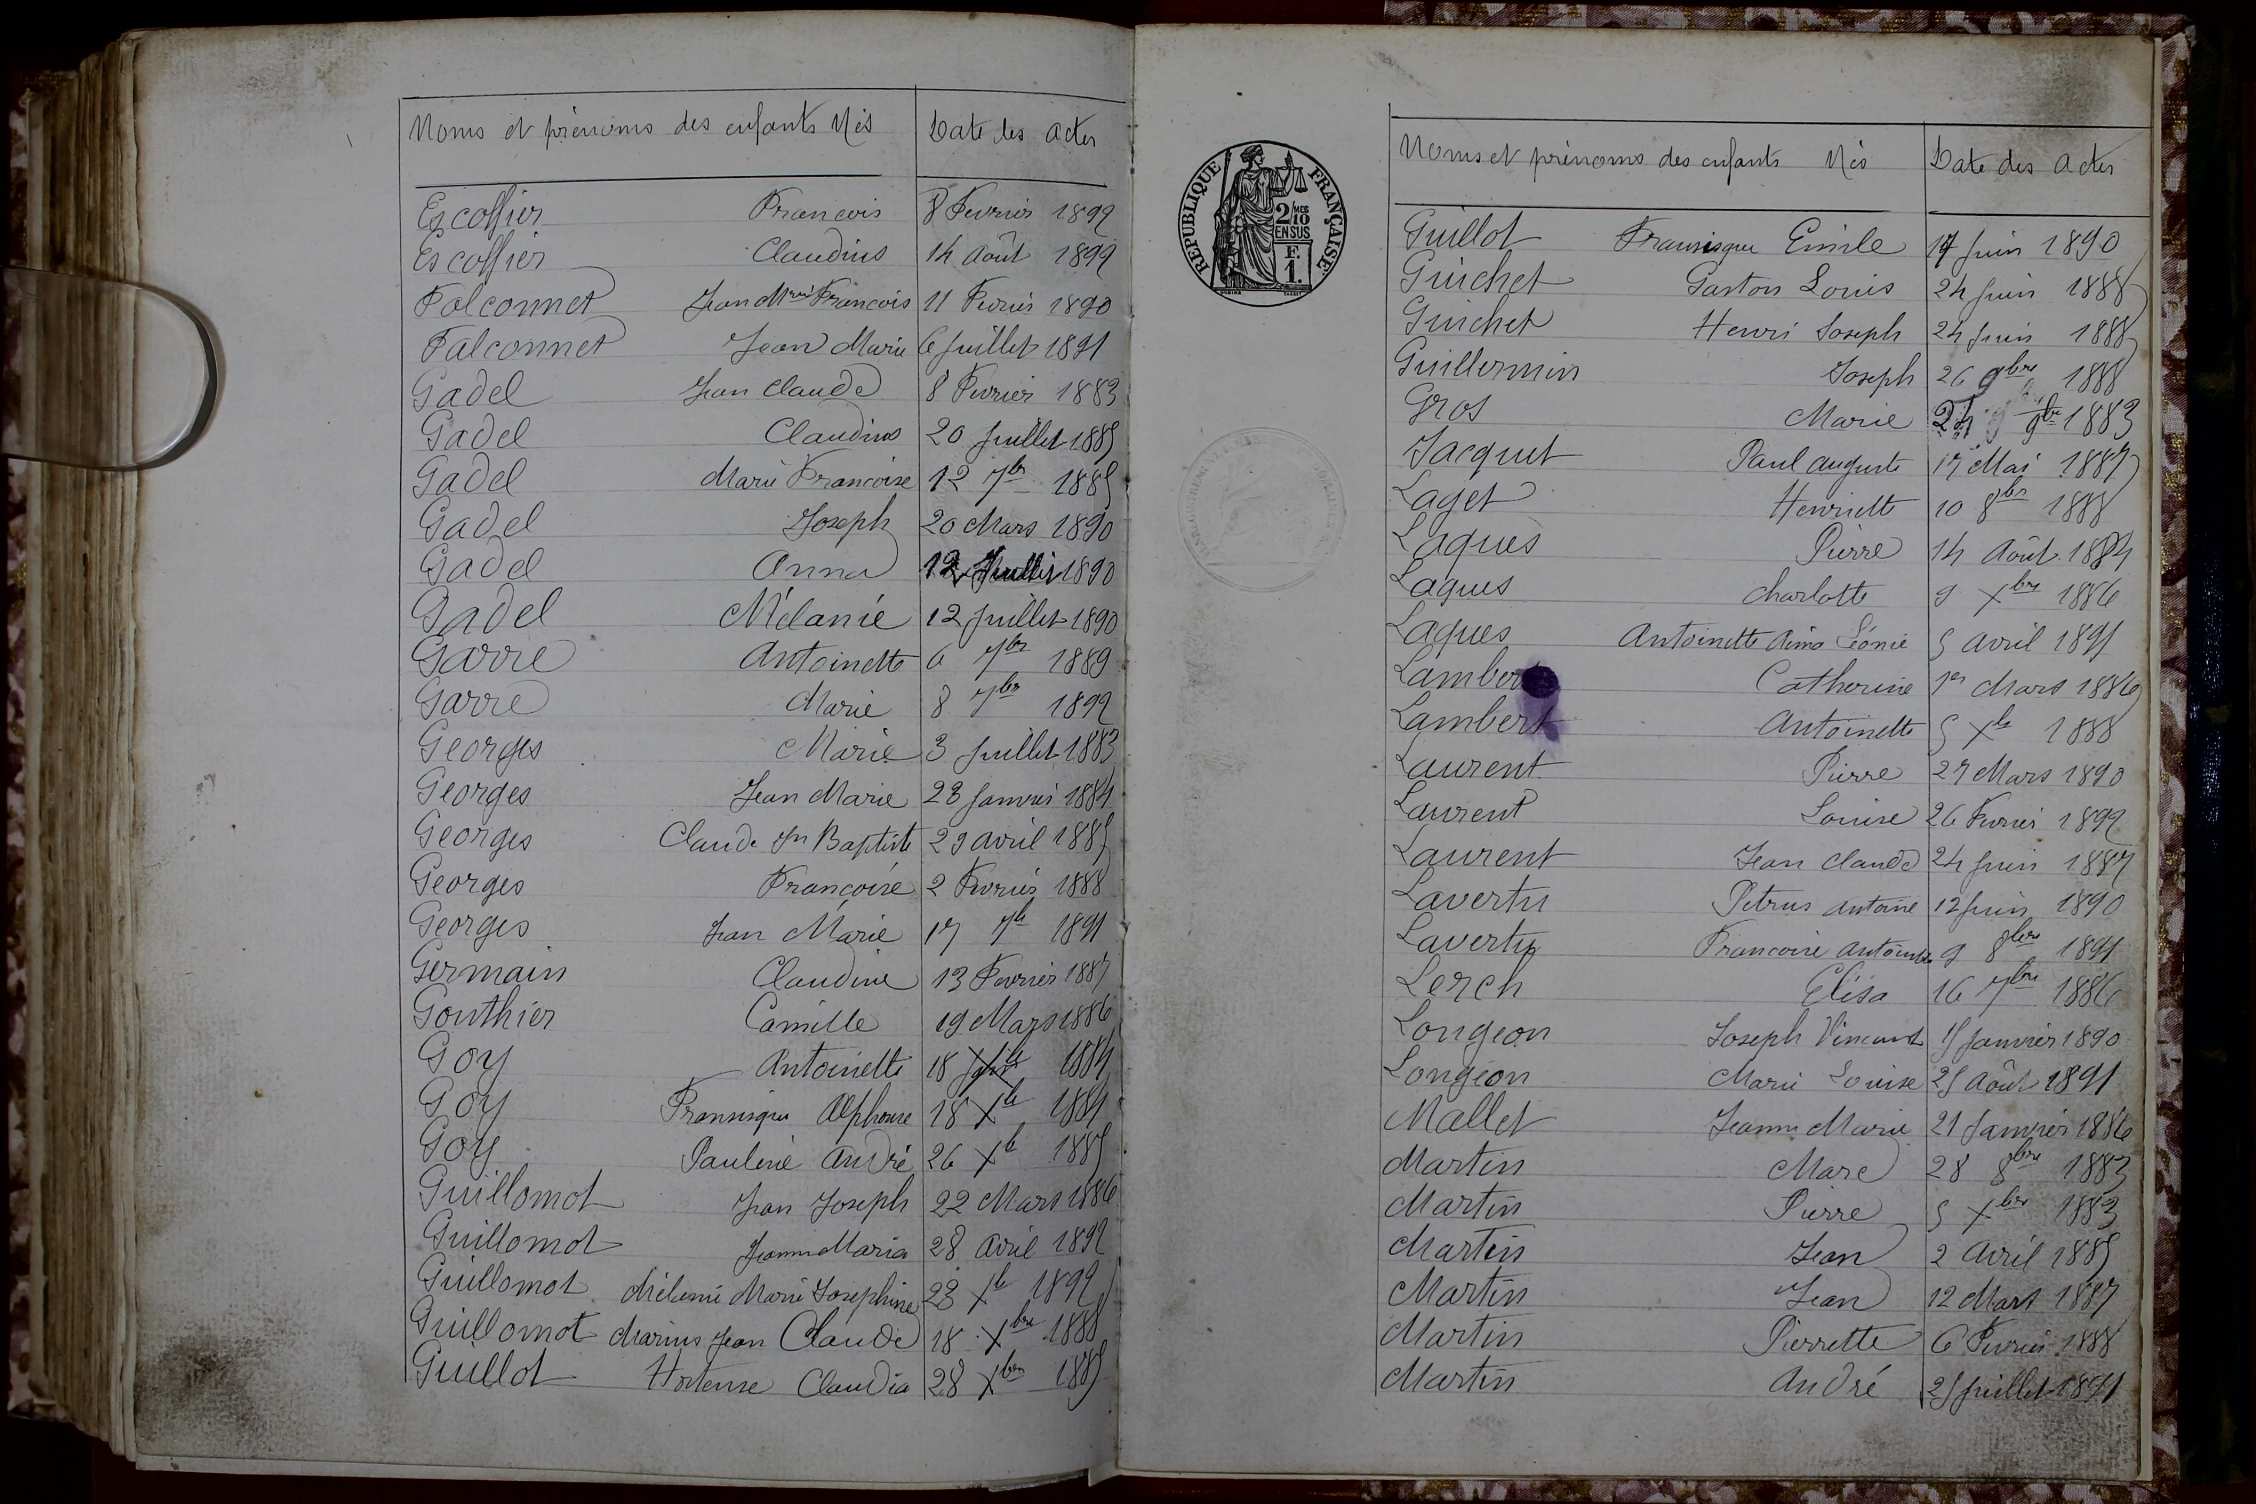 Noms et prénoms des enfants Nés Date des actes
Escoffier Francois 8 Fevrier 1892
Escoffier Claudius 14 Août 1892
Falconnet Jean Mrie Francois 11 Fevrier 1890
Falconnet Jean Marie 6 Juillet 1891
Gadel Jean Claude 8 Fevrier 1883
Gadel Claudius 20 Juillet 1885
Gadel Marie Francoise 12 7br 1885
Gadel Joseph 20 Mars 1890
Gadel Anna 12 Juillet 1890
Gadel Mélanie 12 Juillet 1890
Garre Antoinette 6 7br 1889
Garre Marie 8 7bre 1892
Georges Marie 3 Juillet 1883
Georges Jean Marie 23 Janvier 1884
Georges Claude Jn Baptiste 29 avril 1885
Georges Francoise 2 Fevrier 1888
Georges Jean Marie 17 7b 1891
Germain Claudine 13 Fevrier 1887
Gouthier Camille 19 Mars 1886
Goy Antoinette 18 1884
Goy Fransisque Alphonse 18 Xb 1884
Goy Pauline André 26 Xb 1885
Guillomot Jean Joseph 22 Mars 1886
Guillomot Jeanne Maria 28 Avril 1892
Guillomot Mélanie Marie Josephine 23 Xb 1892
Guillomot Marius Jean Claude 18 Xbre 1888
Guillot Hortense Claudia 28 Xbre 1885
REPUBLIQUE FRANÇAISE
2/10 MES
EN SUS
F.
1.
Noms et prénoms des enfants Nés Date des actes
Guillot Fransisque Emile 17 Juin 1890
Guichet Gaston Louis 24 Juin 1888
Guichet Henri Joseph 24 Juin 1888
Guillermin Joseph 26 9bre 1888
Gros Marie 24 9bre 1883
Jacquet Paul auguste 17 Mai 1887
Laget Henriette 10 8bre 1888
Laques Pierre 14 Août 1884
Laques Charlotte 9 Xbre 1886
Laques Antoinette Léonie 5 avril 1891
Lambert Catherine 1er Mars 1886
Lambert Antoinette 5 Xb 1888
Laurent Pierre 27 Mars 1890
Laurent Louise 26 Fevrier 1892
Laurent Jean Claude 24 Juin 1887
Lavertu Petrus antoine 12 Juin 1890
Lavertu Francoise antoinette 9 8bre 1891
Lerch Elisa 16 7bre 1886
Longeon Joseph Vincent 15 Janvier 1890
Longeon Marie Louise 25 Août 1891
Mallet Jeanne Marie 21 Janvier 1886
Martin Marc 28 8bre 1883
Martin Pierre 5 Xbre 1883
Martin Jean 2 Avril 1885
Martin Jean 12 Mars 1887
Martin Pierrette 6 Fevrier 1888
Martin André 25 Juillet 1891